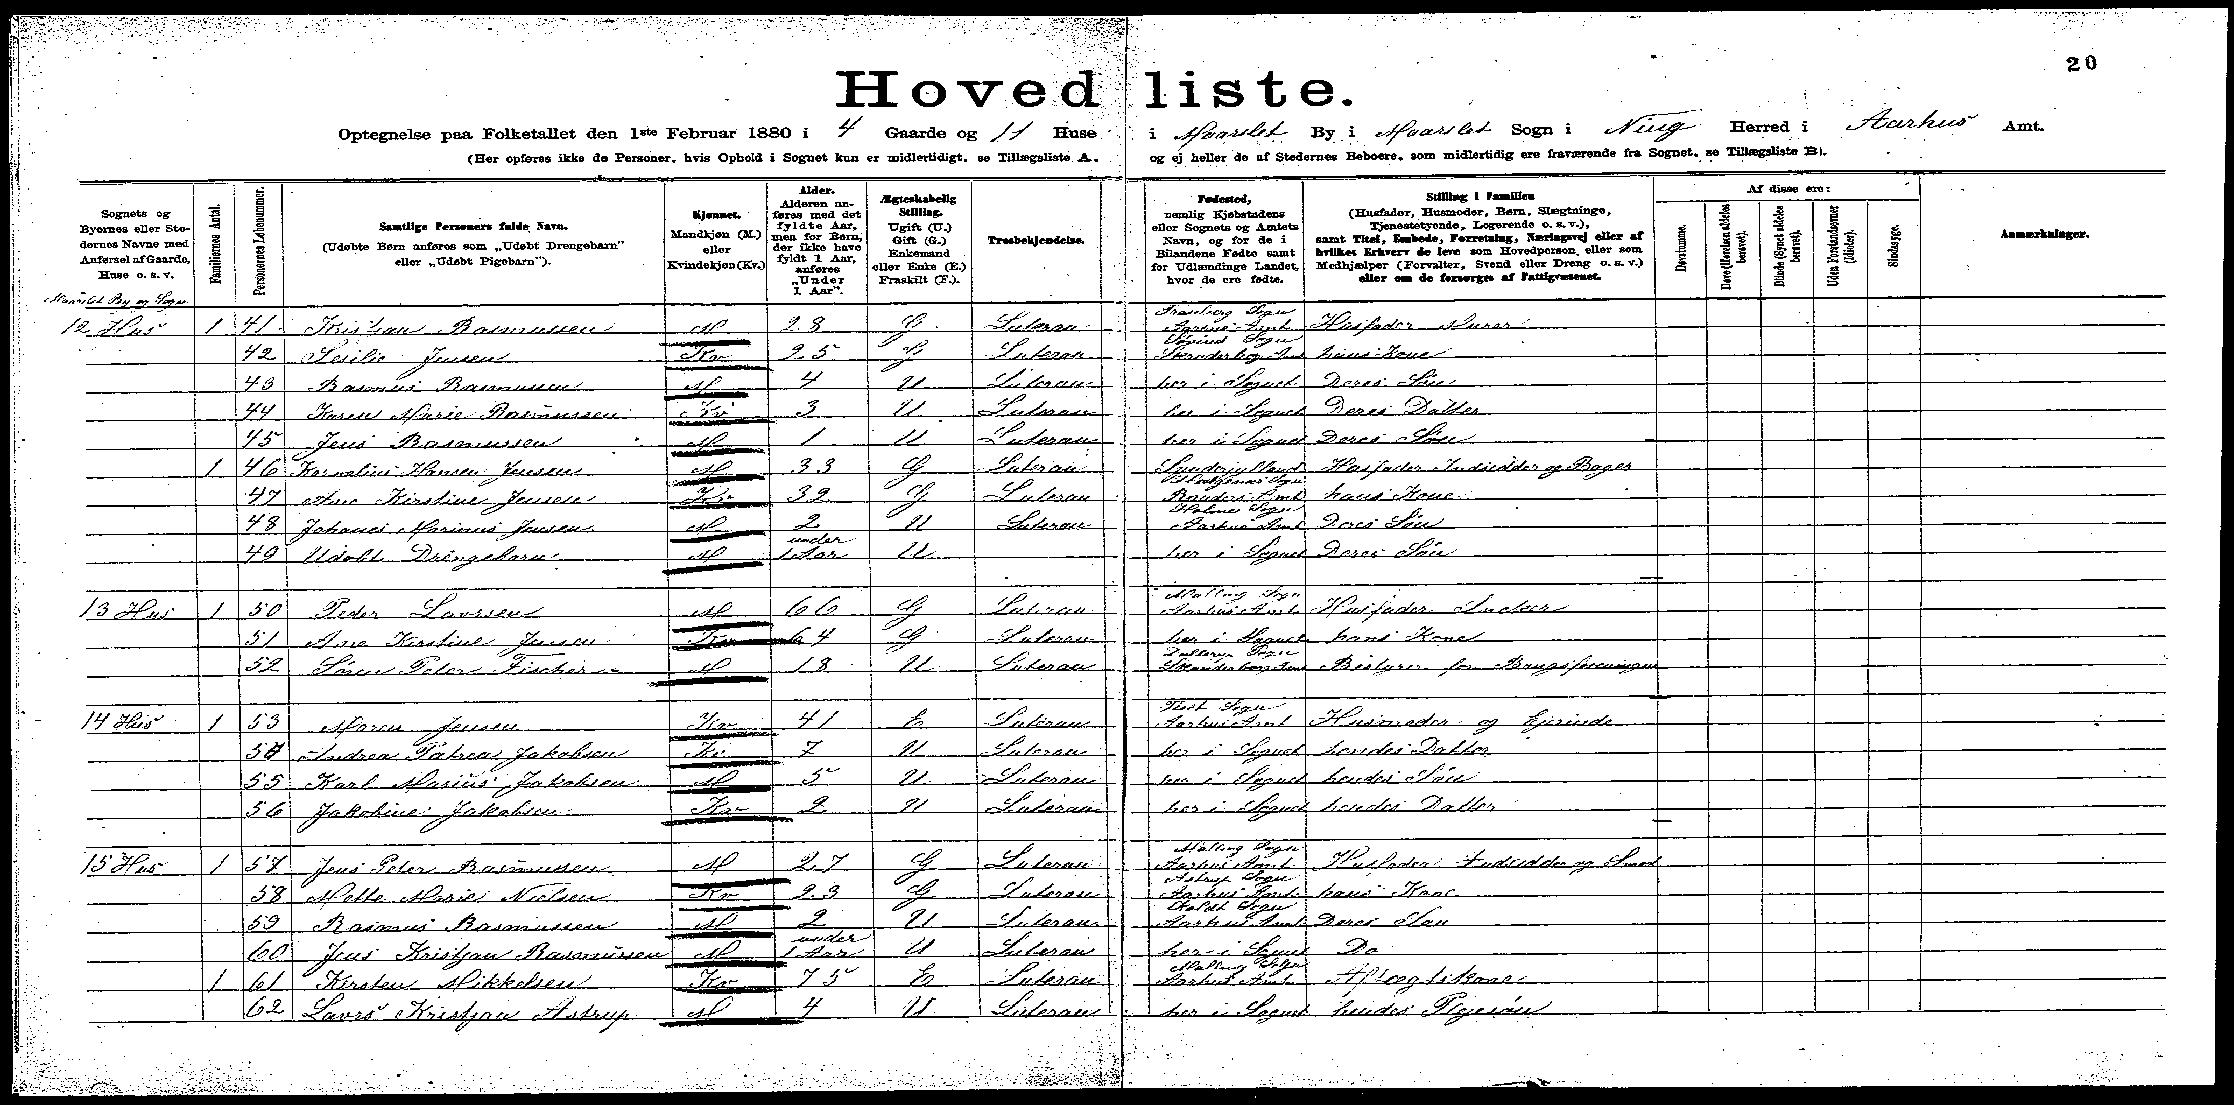 20
Hovedliste.
Optegnelse paa Folketallet den 1ste Februar 1880 i 4 Gaarde og 11 Huse i Maarslet By i Maarslet Sogn i Ning Herred i Aarhus Amt.
(Her opføres ikke de Personer, hvis Ophold i Sognet kun er midlertidigt, se Tillægsliste A. og ej heller de af Stedernes Beboere, som midlertidig ere fraværende fra Sognet, se Tillægsliste B).
Sognets og Byernes eller Stedernes Navne med Anførsel af Gaarde, Huse o. s. v.
Familiernes Antal.
Personernes Løbenummer.
Samtlige Personers fulde Navn. (Udøbte Børn anføres som „Udøbt Drengebarn" eller „Udøbt Pigebarn").
Kjønnet. Mandkjøn (M.) eller Kvindekjøn (Kv.)
Alder. Alderen anføres med det fyldte Aar, men for Børn, der ikke have fyldt 1 Aar, anføres „Under 1 Aar".
Ægteskabelig Stilling. Ugift (U.) Gift (G.) Enkemand eller Enke (E.) Fraskilt (F.).
Troesbekjendelse.
Fødested, nemlig Kjøbstadens eller Sognets og Amtets Navn, og for de i Bilandene Fødte samt for Udlændinge Landet, hvor de ere fødte.
Stilling i Familien (Husfader, Husmoder, Børn, Slægtninge, Tjenestetyende, Logerende o. s. v.), samt Titel, Embede, Forretning, Næringsvej eller af hvilket Erhverv de leve som Hovedperson eller som Medhjælper (Forvalter, Svend eller Dreng o. s. v.) eller om de forsørges af Fattigvæsenet.
Af disse ere:
Døvstumme.
Døve (Hørelsen aldeles berøvet).
Blinde (Synet aldeles berøvet).
Uden Forstandsevner (Idioter).
Sindssyge.
Anmærkninger.
Maarslet By og Sogn
12 Hus 1 41 Kristjan Rasmussen M 28 G Luteran Sogn Aarhus Amt Husfader Murer
42 Sesilie Jensen Kv 25 G Luteran Sogn Skanderborg Amt hans Kone
43 Rasmus Rasmussen M 4 U Luteran her i Sognet Deres Søn
44 Karen Marie Rasmussen Kv 3 U Luteran her i Sognet Deres Datter
45 Jens Rasmussen M 1 U Luteran her i Sognet Deres Søn
1 46 Kornelius Hansen Jensen M 33 G Luteran Sønderjylland Husfader Indsidder og Bager
47 Ane Kirstine Jensen Kv 32 G Luteran Sogn Randers Amt hans Kone
48 Johanes Marinus Jensen M 2 U Luteran Holme Sogn Aarhus Amt Deres Søn
49 Udøbt Drengebarn M under 1 Aar U her i Sognet Deres Søn
13 Hus 1 50 Peder Laursen M 66 G Luteran Malling Sogn Aarhus Amt Husfader Snedker
51 Ane Kirstine Jensen Kv 64 G Luteran her i Sognet hans Kone
52 Søren Peter Fischer M 18 U Luteran Sogn Skanderborg Amt Bestyrer for Brugsforeningen
14 Hus 1 53 Maren Jensen Kv 41 E Luteran Tiset Sogn Aarhus Amt Husmoder og Ejerinde
54 Andrea Petrea Jakobsen Kv 7 U Luteran her i Sognet hendes Datter
55 Karl Marius Jakobsen M 5 U Luteran her i Sognet hendes Søn
56 Jakobine Jakobsen Kv 2 U Luteran her i Sognet hendes Datter
15 Hus 1 57 Jens Peter Rasmussen M 27 G Luteran Malling Sogn Aarhus Amt Husfader Indsidder og Smed
58 Mette Marie Nielsen Kv 23 G Luteran Astrup Sogn Aarhus Amt hans Kone
59 Rasmus Rasmussen M 2 U Luteran Sogn Aarhus Amt Deres Søn
60 Jens Kristjan Rasmussen M under 1 Aar U Luteran her i Sognet Do
1 61 Kirsten Mikkelsen Kv 75 E Luteran Malling Sogn Aarhus Amt Aftægtskone
62 Lavrs Kristjan Astrup M 4 U Luteran her i Sognet hendes Plejesøn